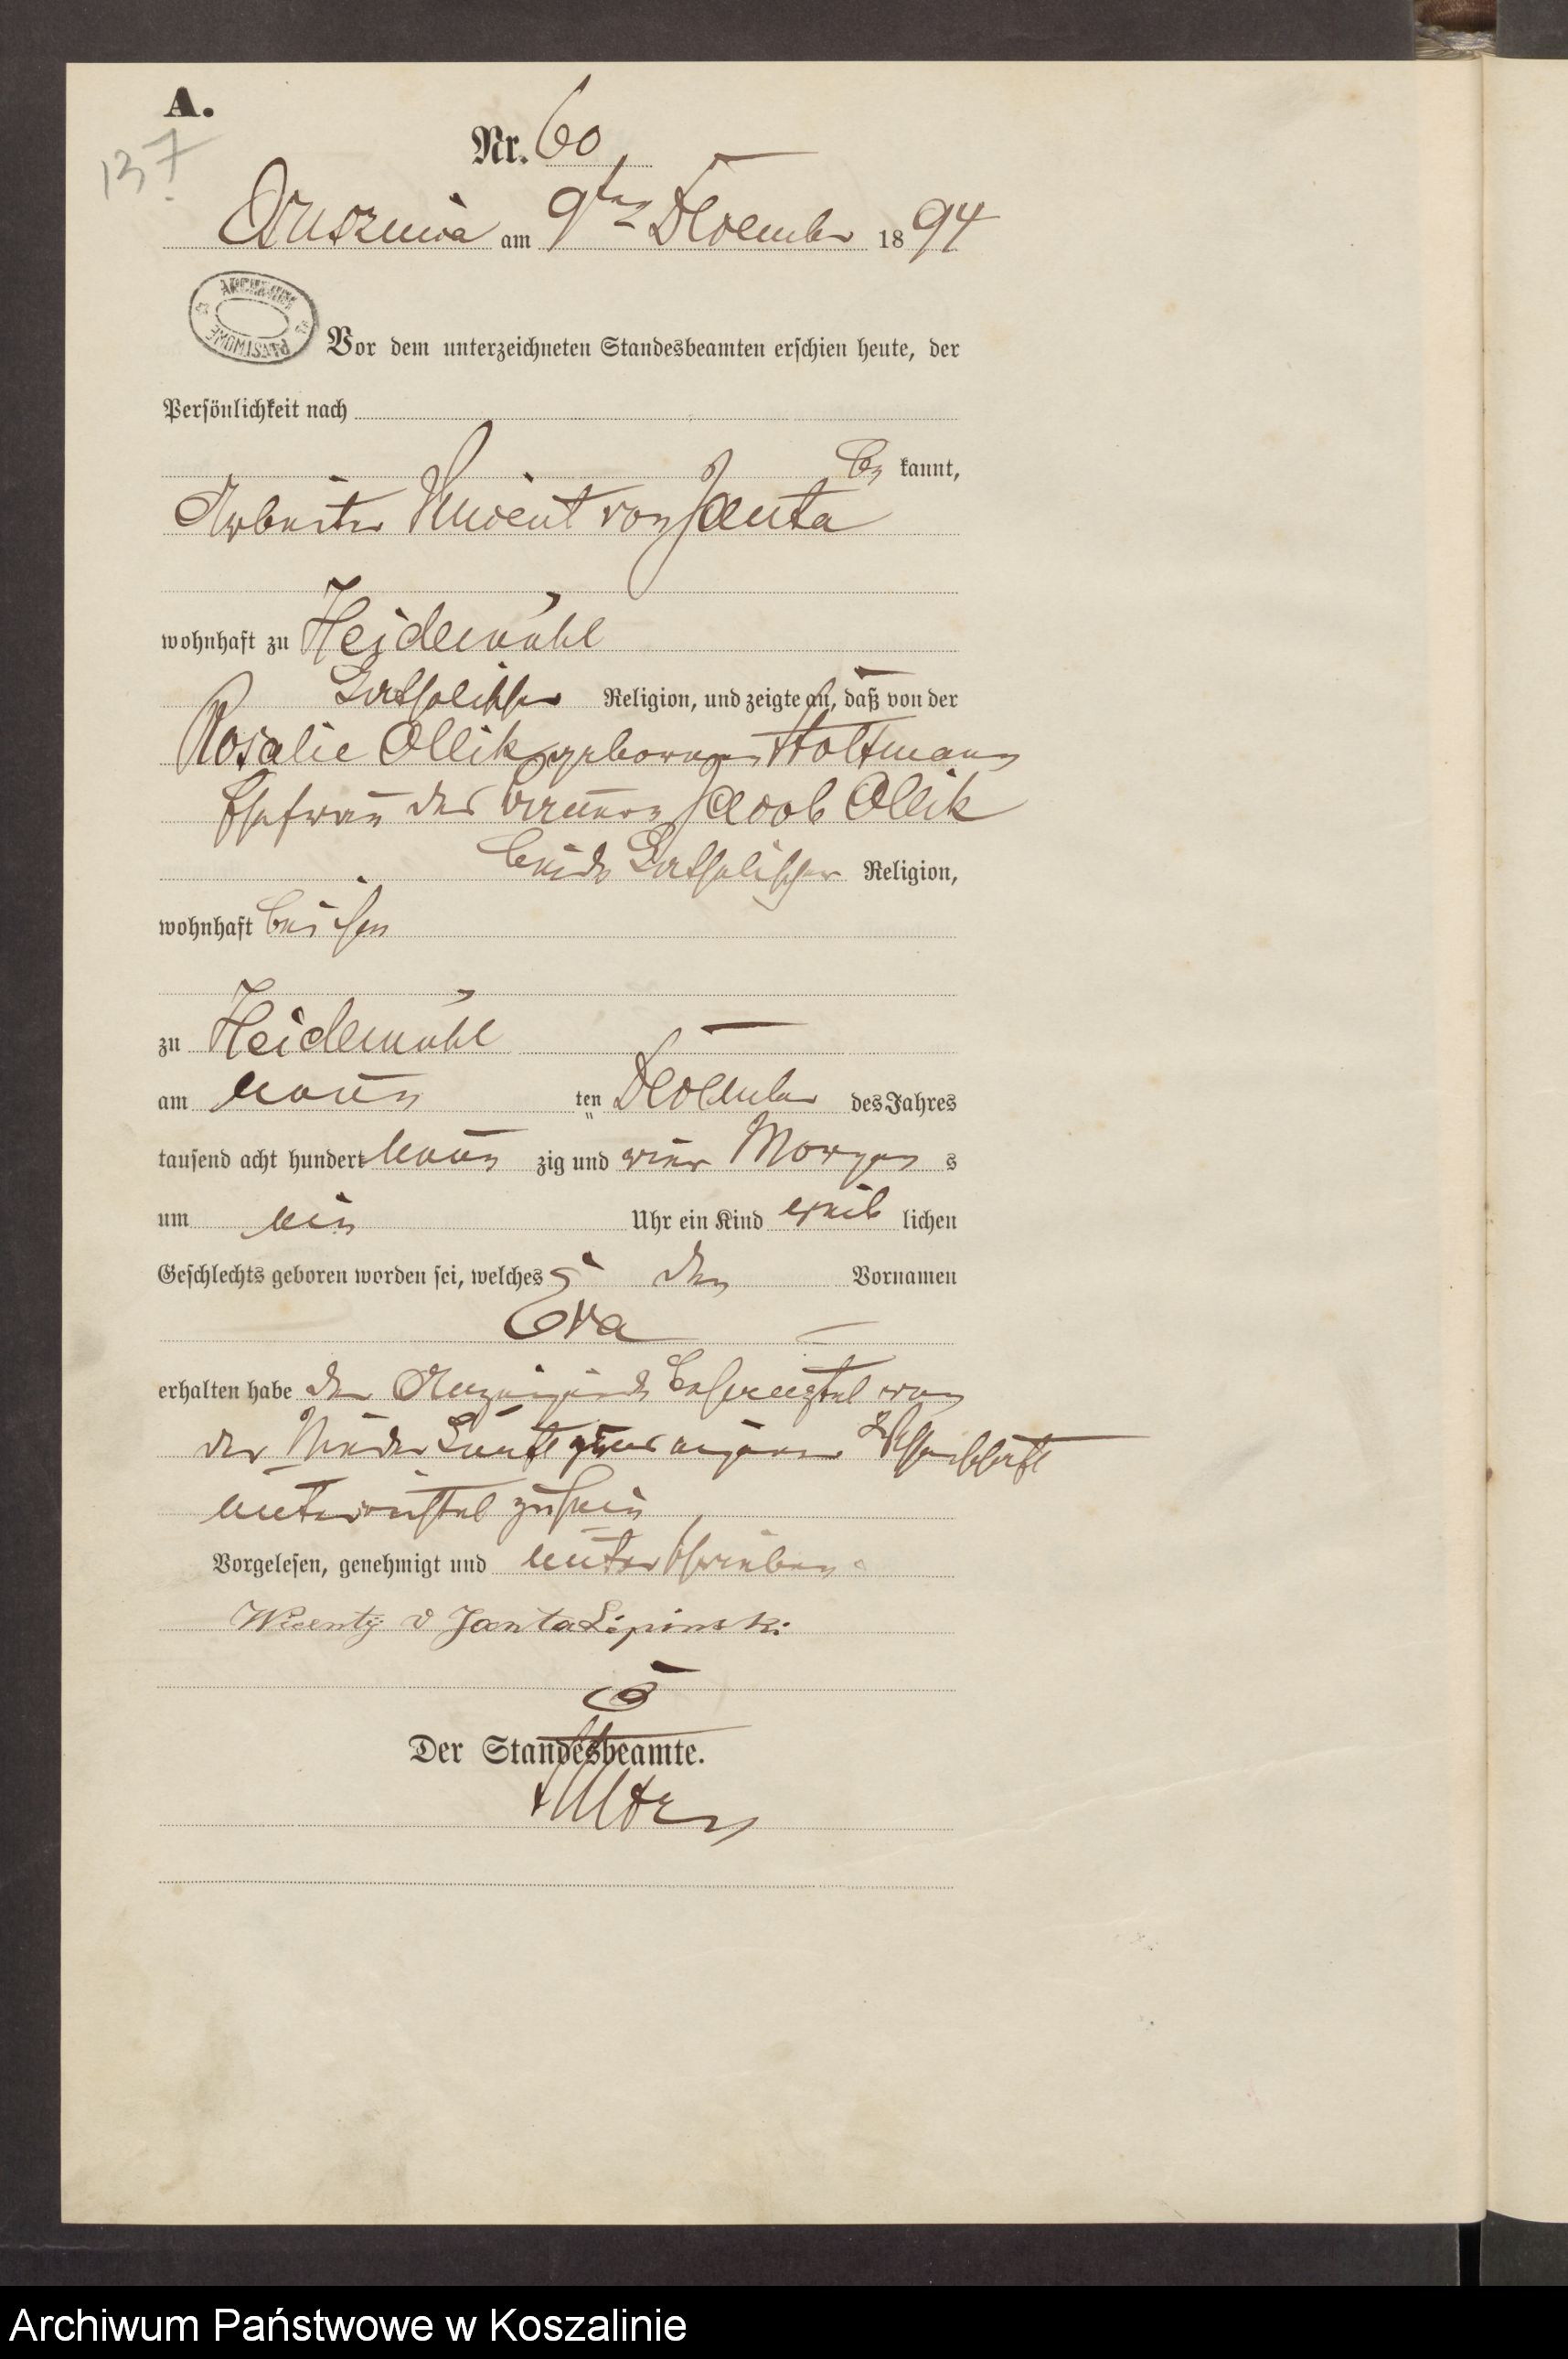 A.
137
Nr. 60
Bruszenica am 9ten December 1894
ARCHIWUM PAŃSTWOWE
Vor dem unterzeichneten Standesbeamten erschien heute, der
Persönlichkeit nach
be kannt,
Arbeiter Vincent von Janta
wohnhaft zu Heidemühl
katholischer Religion, und zeigte an, daß von der
Rosalie Ollik geborenen Stoltmann
Ehefrau des Jacob Ollik
beide katholischer Religion,
wohnhaft bei ihm
zu Heidemühl
am neun ten December des Jahres
tausend acht hundert neun zig und vier Morgen s
um ein Uhr ein Kind weib lichen
Geschlechts geboren worden sei, welches den Vornamen
Eva
erhalten habe der Anzeigende von
der Niederkunft aus eigener Wissenschaft
unterrichtet zu sein
Vorgelesen, genehmigt und unterschrieben
Wicenty v Janta Lipinski
Der Standesbeamte.
Archiwum Państwowe w Koszalinie